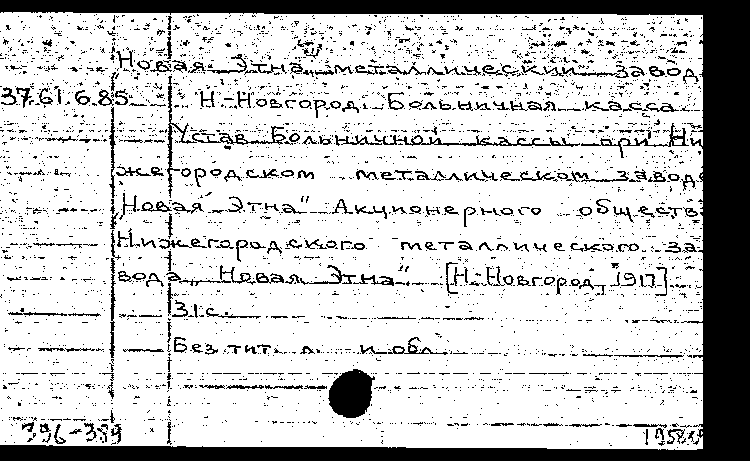 „Новая Этна" металлический завод
37.61.6.85 Н.-Новгород. Больничная касса
Устав Больничной кассы при Ни-
жегородском металлическом заводе
„Новая Этна" Акционерного общества
Нижегородского металлического за-
вода „Новая Этна" [Н.-Новгород, 1917]
31 с.
Без тит. л. и обл.
396-389